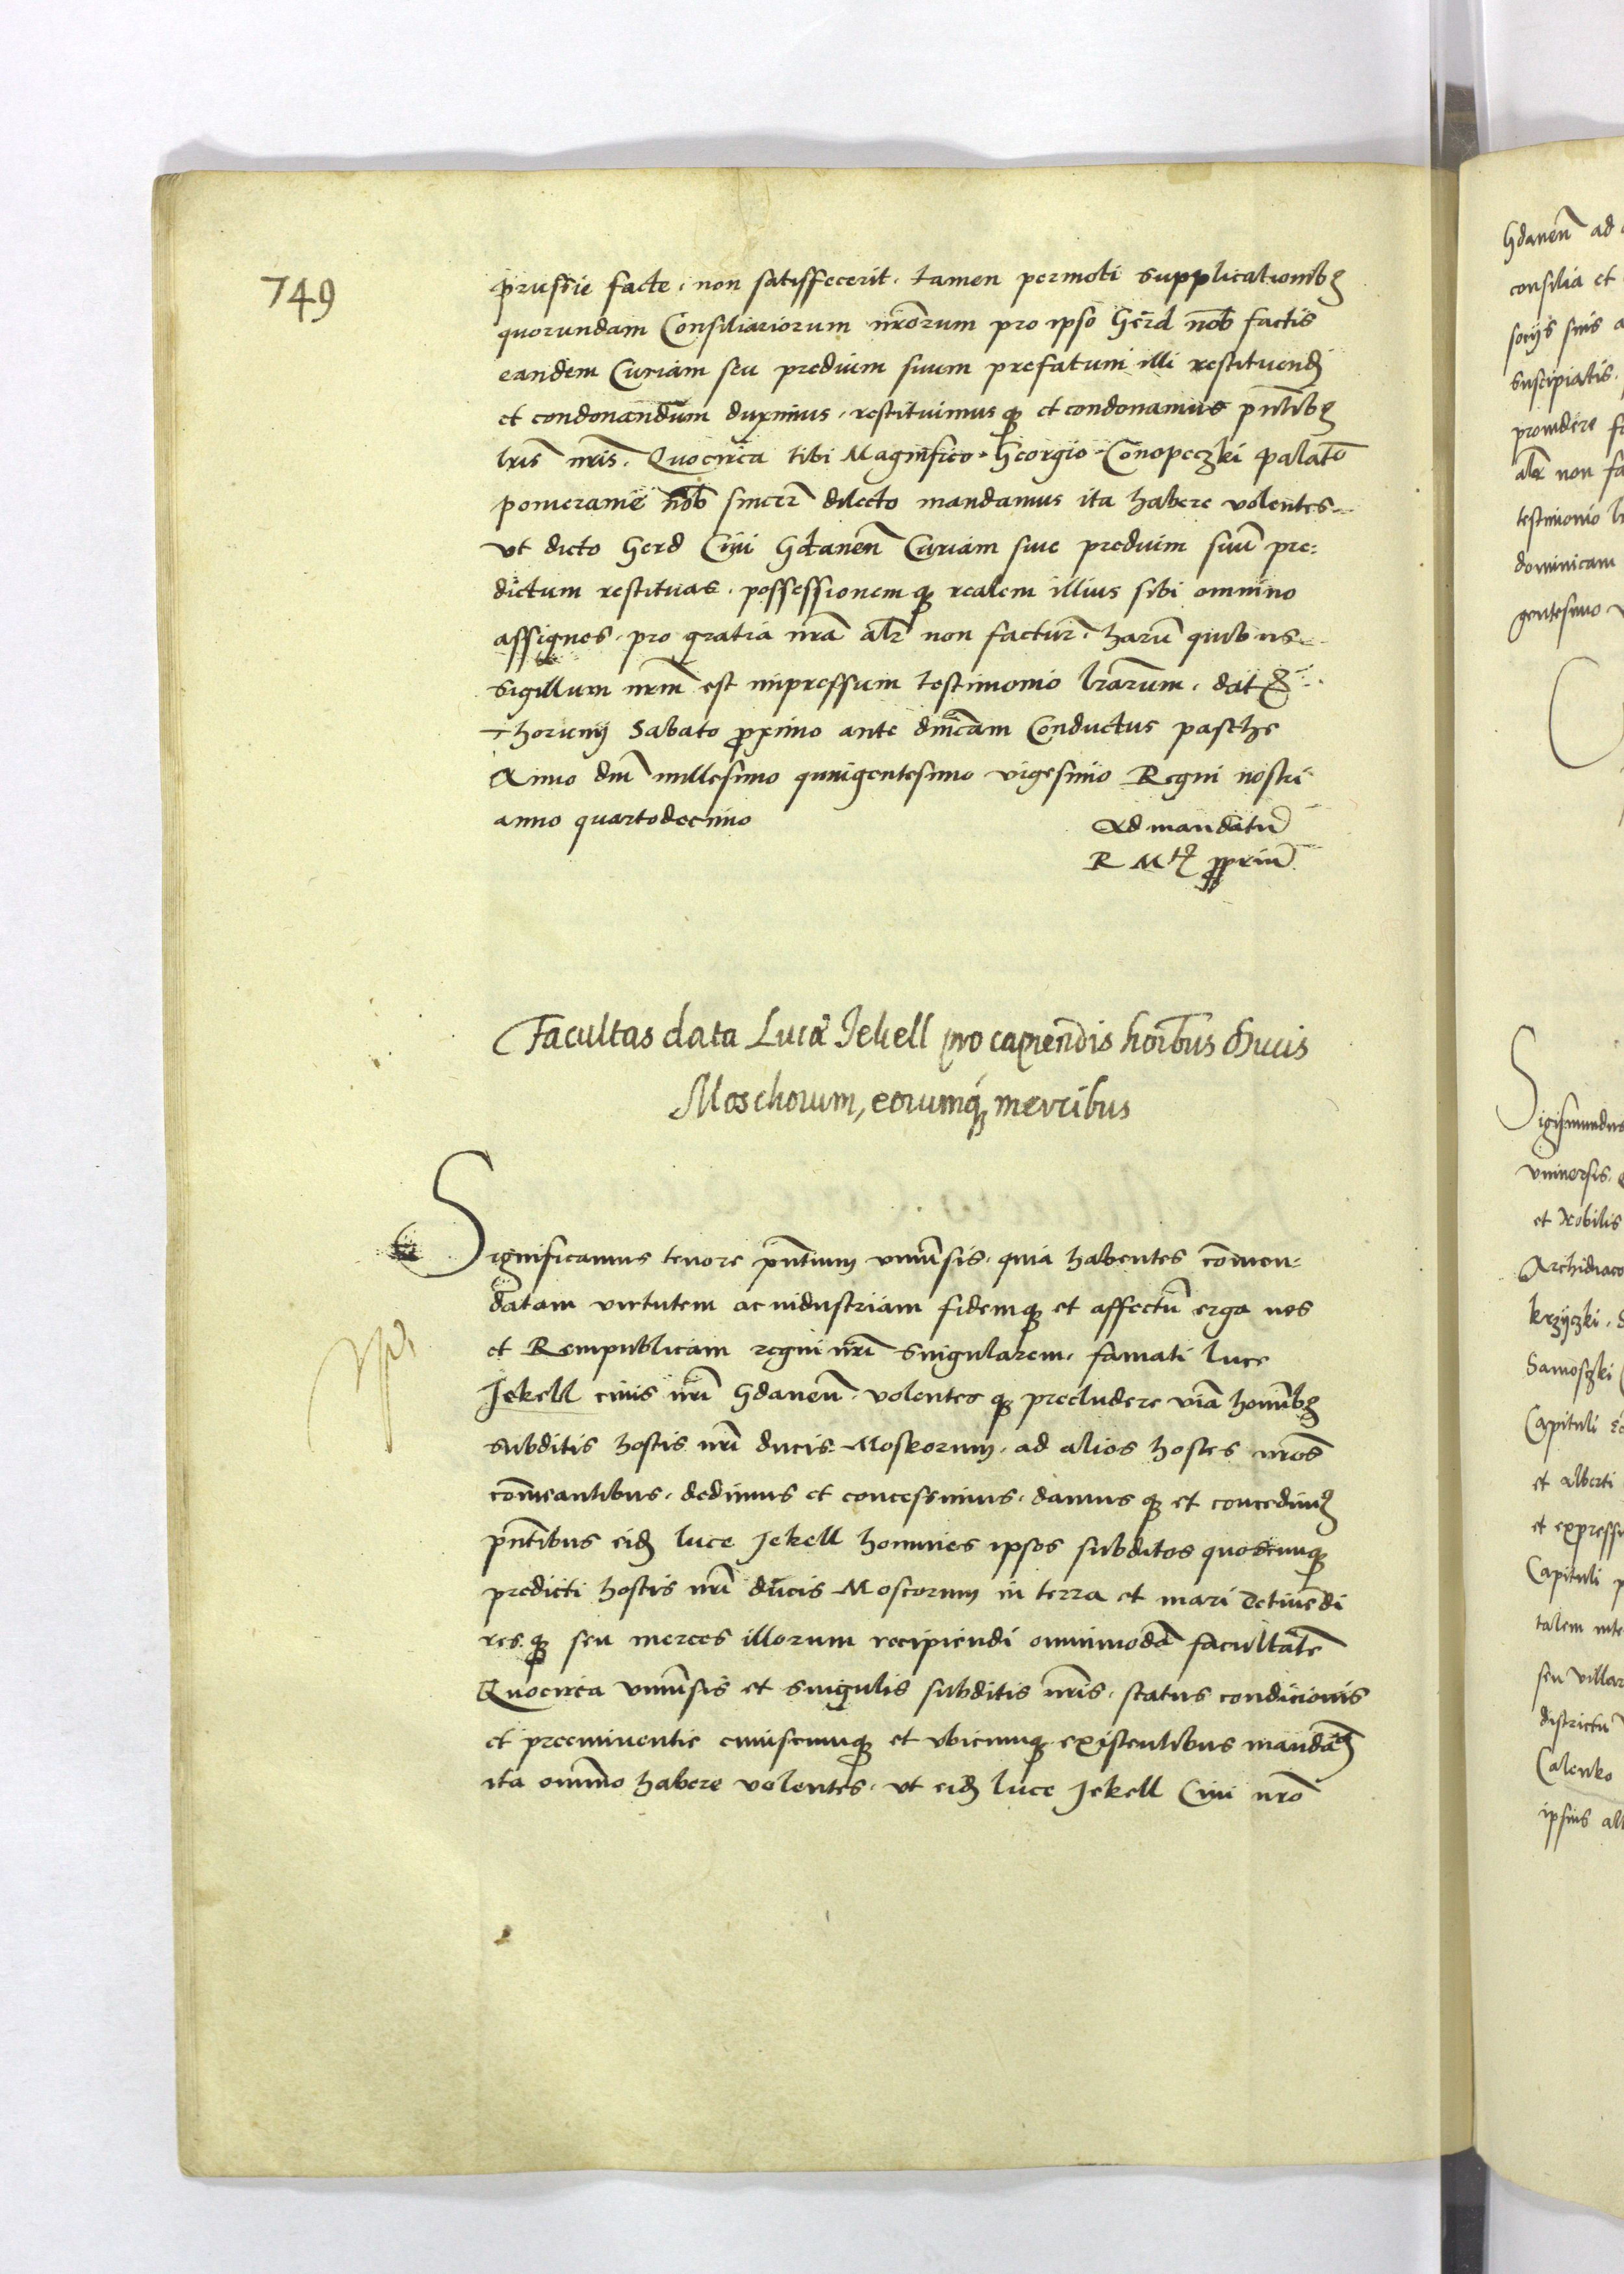 749
prussie facte, non satisfecerit, tamen permoti supplicationibꝫ
quorundam Consiliariorum nr̄orum pro ipso Gerd nob̄ factis
eandem Curiam seu predium suum prefatum illi restituendā
et condonandum duximus, restituimus qꝫ et condonamus pn̄tibꝫ
lr̄is nr̄is. Quocirca tibi Magnifico Georgio Conopeczki palat̄o
pomeranie nob̄ sincer̄ dilecto mandamus ita habere volentes
vt dicto Gerd Ciui Gdaneñ Curiam siue predium suū pre:
dictum restituas, possessionem qꝫ realem illius sibi omnino
assignes, pro gratia nr̄a alr̄ non factur̄, harū quibus
sigillum nrm̄ est impressum testimonio lr̄arum, dat
Thorunij Sabato ꝓximo ante dnīcam Conductus pasche
Anno dnī millesimo quingentesimo vigesimo Regni nostri
anno quartodecimo
Ad mandatū
R Mtꝭ ꝓpriū
Facultas data Lucæ Jekell pro capiendis hoībus Ducis
Moschorum, eorumqꝫ mercibus
Significamus tenore pn̄tium vniuersis, quia habentes com̄en:
datam virtutem ac industriam fidemqꝫ et affectū erga nos
et Rempublicam regni nrī singularem, famati luce
Jekell ciuis nrī Gdaneñ, volentes qꝫ precludere viā hominibꝫ
subditis hostis nrī ducis Moskorum, ad alios hostes nr̄os
com̄eantibus, dedimus et concessimus, damus qꝫ et concedimꝰ
pn̄tibus eidꝫ luce Jekell homines ipsos subditos quoscunqꝫ
predicti hostis nrī ducis Moscorum in terra et mari detinēdi
res qꝫ seu merces illorum recipiendi omnimodā facultatē
Quocirca vniuersis et singulis subditis nr̄is, status condicionis
et preeminentie cuiuscunqꝫ et vbicunqꝫ existentibus mandamꝰ
ita omnīo habere volentes, vt eidꝫ luce Jekell Ciui nr̄o
Gdaneñ ad
consilia et
socijs suis
suscipiatis,
prouidere
alr̄ non
testimonio
dominicam
gentesimo
Sigismundus
vniuersis,
et Nobilis
Archidiaco
krzyczki,
Samoszki
Capituli
et alberti
et expresse
Capituli
talem inte
seu villar
districtū
Calenko
ipsius